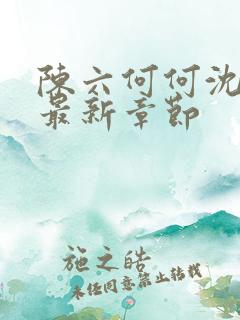 陳六何何沈
最新章節
施之皓
未经同意禁止转载